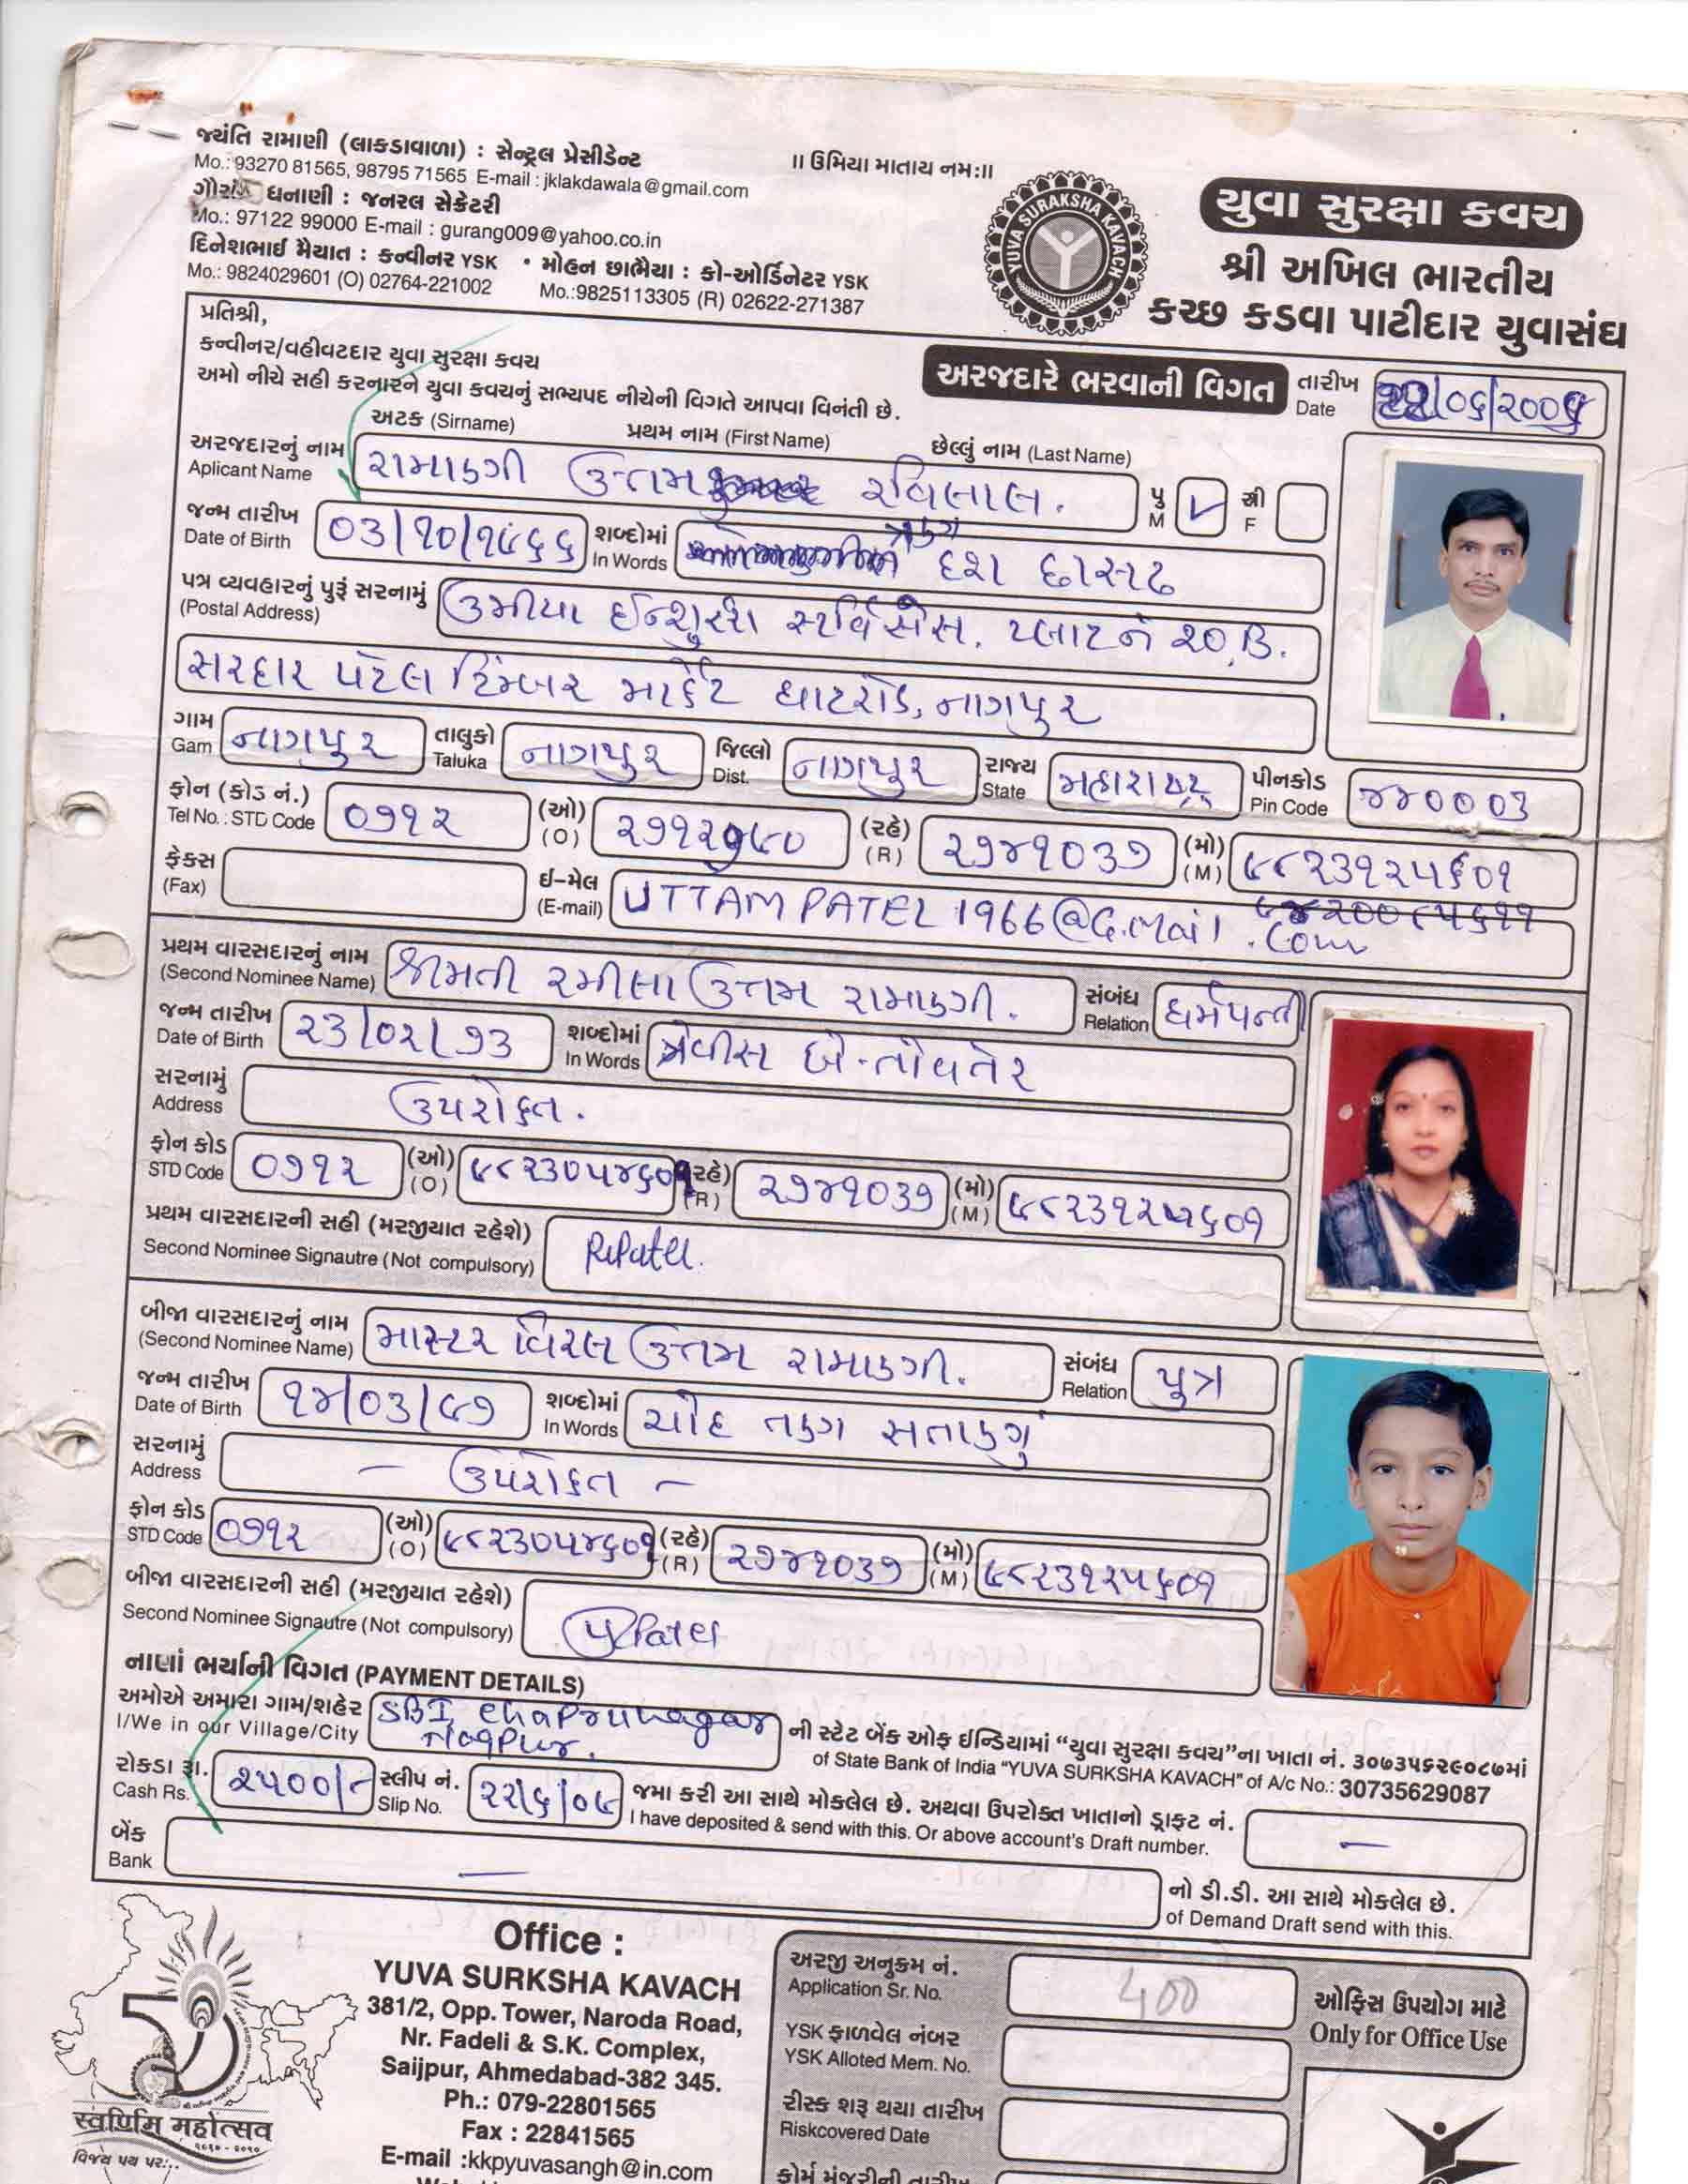 જયંતિ રામાણી (લાકડાવાળા) : સેન્ટ્રલ પ્રેસીડેન્ટ
Mo.: 93270 81565, 98795 71565 E-mail : jklakdawala@gmail.com
ધનાણી : જનરલ સેક્રેટરી
Mo.: 97122 99000 E-mail : gurang009@yahoo.co.in
દિનેશભાઈ મૈયાત : કન્વીનર YSK • મોહન છાભૈયા : કો-ઓર્ડિનેટર YSK
Mo.: 9824029601 (O) 02764-221002 Mo.:9825113305 (R) 02622-271387
॥ ઉમિયા માતાય નમ:॥
YUVA SURAKSHA KAVACH
યુવા સુરક્ષા કવચ
શ્રી અખિલ ભારતીય
કચ્છ કડવા પાટીદાર યુવાસંઘ
પ્રતિશ્રી,
કન્વીનર/વહીવટદાર યુવા સુરક્ષા કવચ
અમો નીચે સહી કરનારને યુવા કવચનું સભ્યપદ નીચેની વિગતે આપવા વિનંતી છે.
અરજદારે ભરવાની વિગત
તારીખ
Date /૦૬/૨૦૦૯
અટક (Sirname) પ્રથમ નામ (First Name) છેલ્લું નામ (Last Name)
અરજદારનું નામ રામાણી ઉત્તમ રવિલાલ.
Aplicant Name
પુ M ✓ સ્ત્રી F
જન્મ તારીખ
Date of Birth ૦૩/૧૦/૧૯૬૬ શબ્દોમાં In Words ત્રણ દશ છાસઠ
પત્ર વ્યવહારનું પુરૂં સરનામું
(Postal Address) ઉમીયા ઈન્શુરંશ સર્વિસેસ. પ્લાટનં ૨૦,B.
સરદાર પટેલ ટિંમ્બર માર્કેટ ઘાટરોડ, નાગપુર
ગામ Gam નાગપુર તાલુકો Taluka નાગપુર જિલ્લો Dist. નાગપુર રાજ્ય State મહારાષ્ટ્ર પીનકોડ Pin Code ૪૪૦૦૦૩
ફોન (કોડ નં.)
Tel No.: STD Code ૦૭૧૨ (ઓ) (O) (રહે) (R) ૨૭૪૧૦૩૭ (મો) (M) ૯૮૨૩૧૨૫૬૦૧
ફેક્સ
(Fax) ઈ-મેલ (E-mail) UTTAMPATEL1966@G.Mail .Com
પ્રથમ વારસદારનું નામ
(Second Nominee Name) શ્રીમતી રમીલા ઉત્તમ રામાણી. સંબંધ Relation ધર્મપત્ની
જન્મ તારીખ
Date of Birth ૨૩/૦૨/૭૩ શબ્દોમાં In Words ત્રેવીસ બે-તોંતેર
સરનામું
Address ઉપરોક્ત.
ફોન કોડ
STD Code ૦૭૧૨ (ઓ) (O) ૯૮૨૩૦૫૪૬૦૧ (રહે) (R) ૨૭૪૧૦૩૭ (મો) (M) ૯૮૨૩૧૨૫૬૦૧
પ્રથમ વારસદારની સહી (મરજીયાત રહેશે)
Second Nominee Signautre (Not compulsory) RPatel.
બીજા વારસદારનું નામ
(Second Nominee Name) માસ્ટર વિરલ ઉત્તમ રામાણી. સંબંધ Relation પુત્ર
જન્મ તારીખ
Date of Birth ૧૪/૦૩/૯૭ શબ્દોમાં In Words ચૌદ તણ સતાણું
સરનામું
Address – ઉપરોક્ત –
ફોન કોડ
STD Code ૦૭૧૨ (ઓ) (O) ૯૮૨૩૦૫૪૬૦૧ (રહે) (R) ૨૭૪૧૦૩૭ (મો) (M) ૯૮૨૩૧૨૫૬૦૧
બીજા વારસદારની સહી (મરજીયાત રહેશે)
Second Nominee Signautre (Not compulsory) Patel
નાણાં ભર્યાની વિગત (PAYMENT DETAILS)
અમોએ અમારા ગામ/શહેર SBI Chaprunagar ની સ્ટેટ બેંક ઓફ ઈન્ડિયામાં “યુવા સુરક્ષા કવચ”ના ખાતા નં. ૩૦૭૩૫૬૨૯૦૮૭માં
I/We in our Village/City Nagpur. of State Bank of India “YUVA SURKSHA KAVACH” of A/c No.: 30735629087
રોકડા રૂા. ૨૫૦૦/- સ્લીપ નં. ૨૨/૬/૦૯ જમા કરી આ સાથે મોકલેલ છે. અથવા ઉપરોક્ત ખાતાનો ડ્રાફ્ટ નં. –
Cash Rs. Slip No. I have deposited & send with this. Or above account's Draft number.
બેંક
Bank – નો ડી.ડી. આ સાથે મોકલેલ છે.
of Demand Draft send with this.
50
સ્વર્ણિમ મહોત્સવ
૨૦૧૦
વિજય પથ પર...
Office :
YUVA SURKSHA KAVACH
381/2, Opp. Tower, Naroda Road,
Nr. Fadeli & S.K. Complex,
Saijpur, Ahmedabad-382 345.
Ph.: 079-22801565
Fax : 22841565
E-mail :kkpyuvasangh@in.com
અરજી અનુક્રમ નં.
Application Sr. No. 400
YSK ફાળવેલ નંબર
YSK Alloted Mem. No.
રીસ્ક શરૂ થયા તારીખ
Riskcovered Date
ફોર્મ મંજૂરીની તારીખ
ઓફિસ ઉપયોગ માટે
Only for Office Use